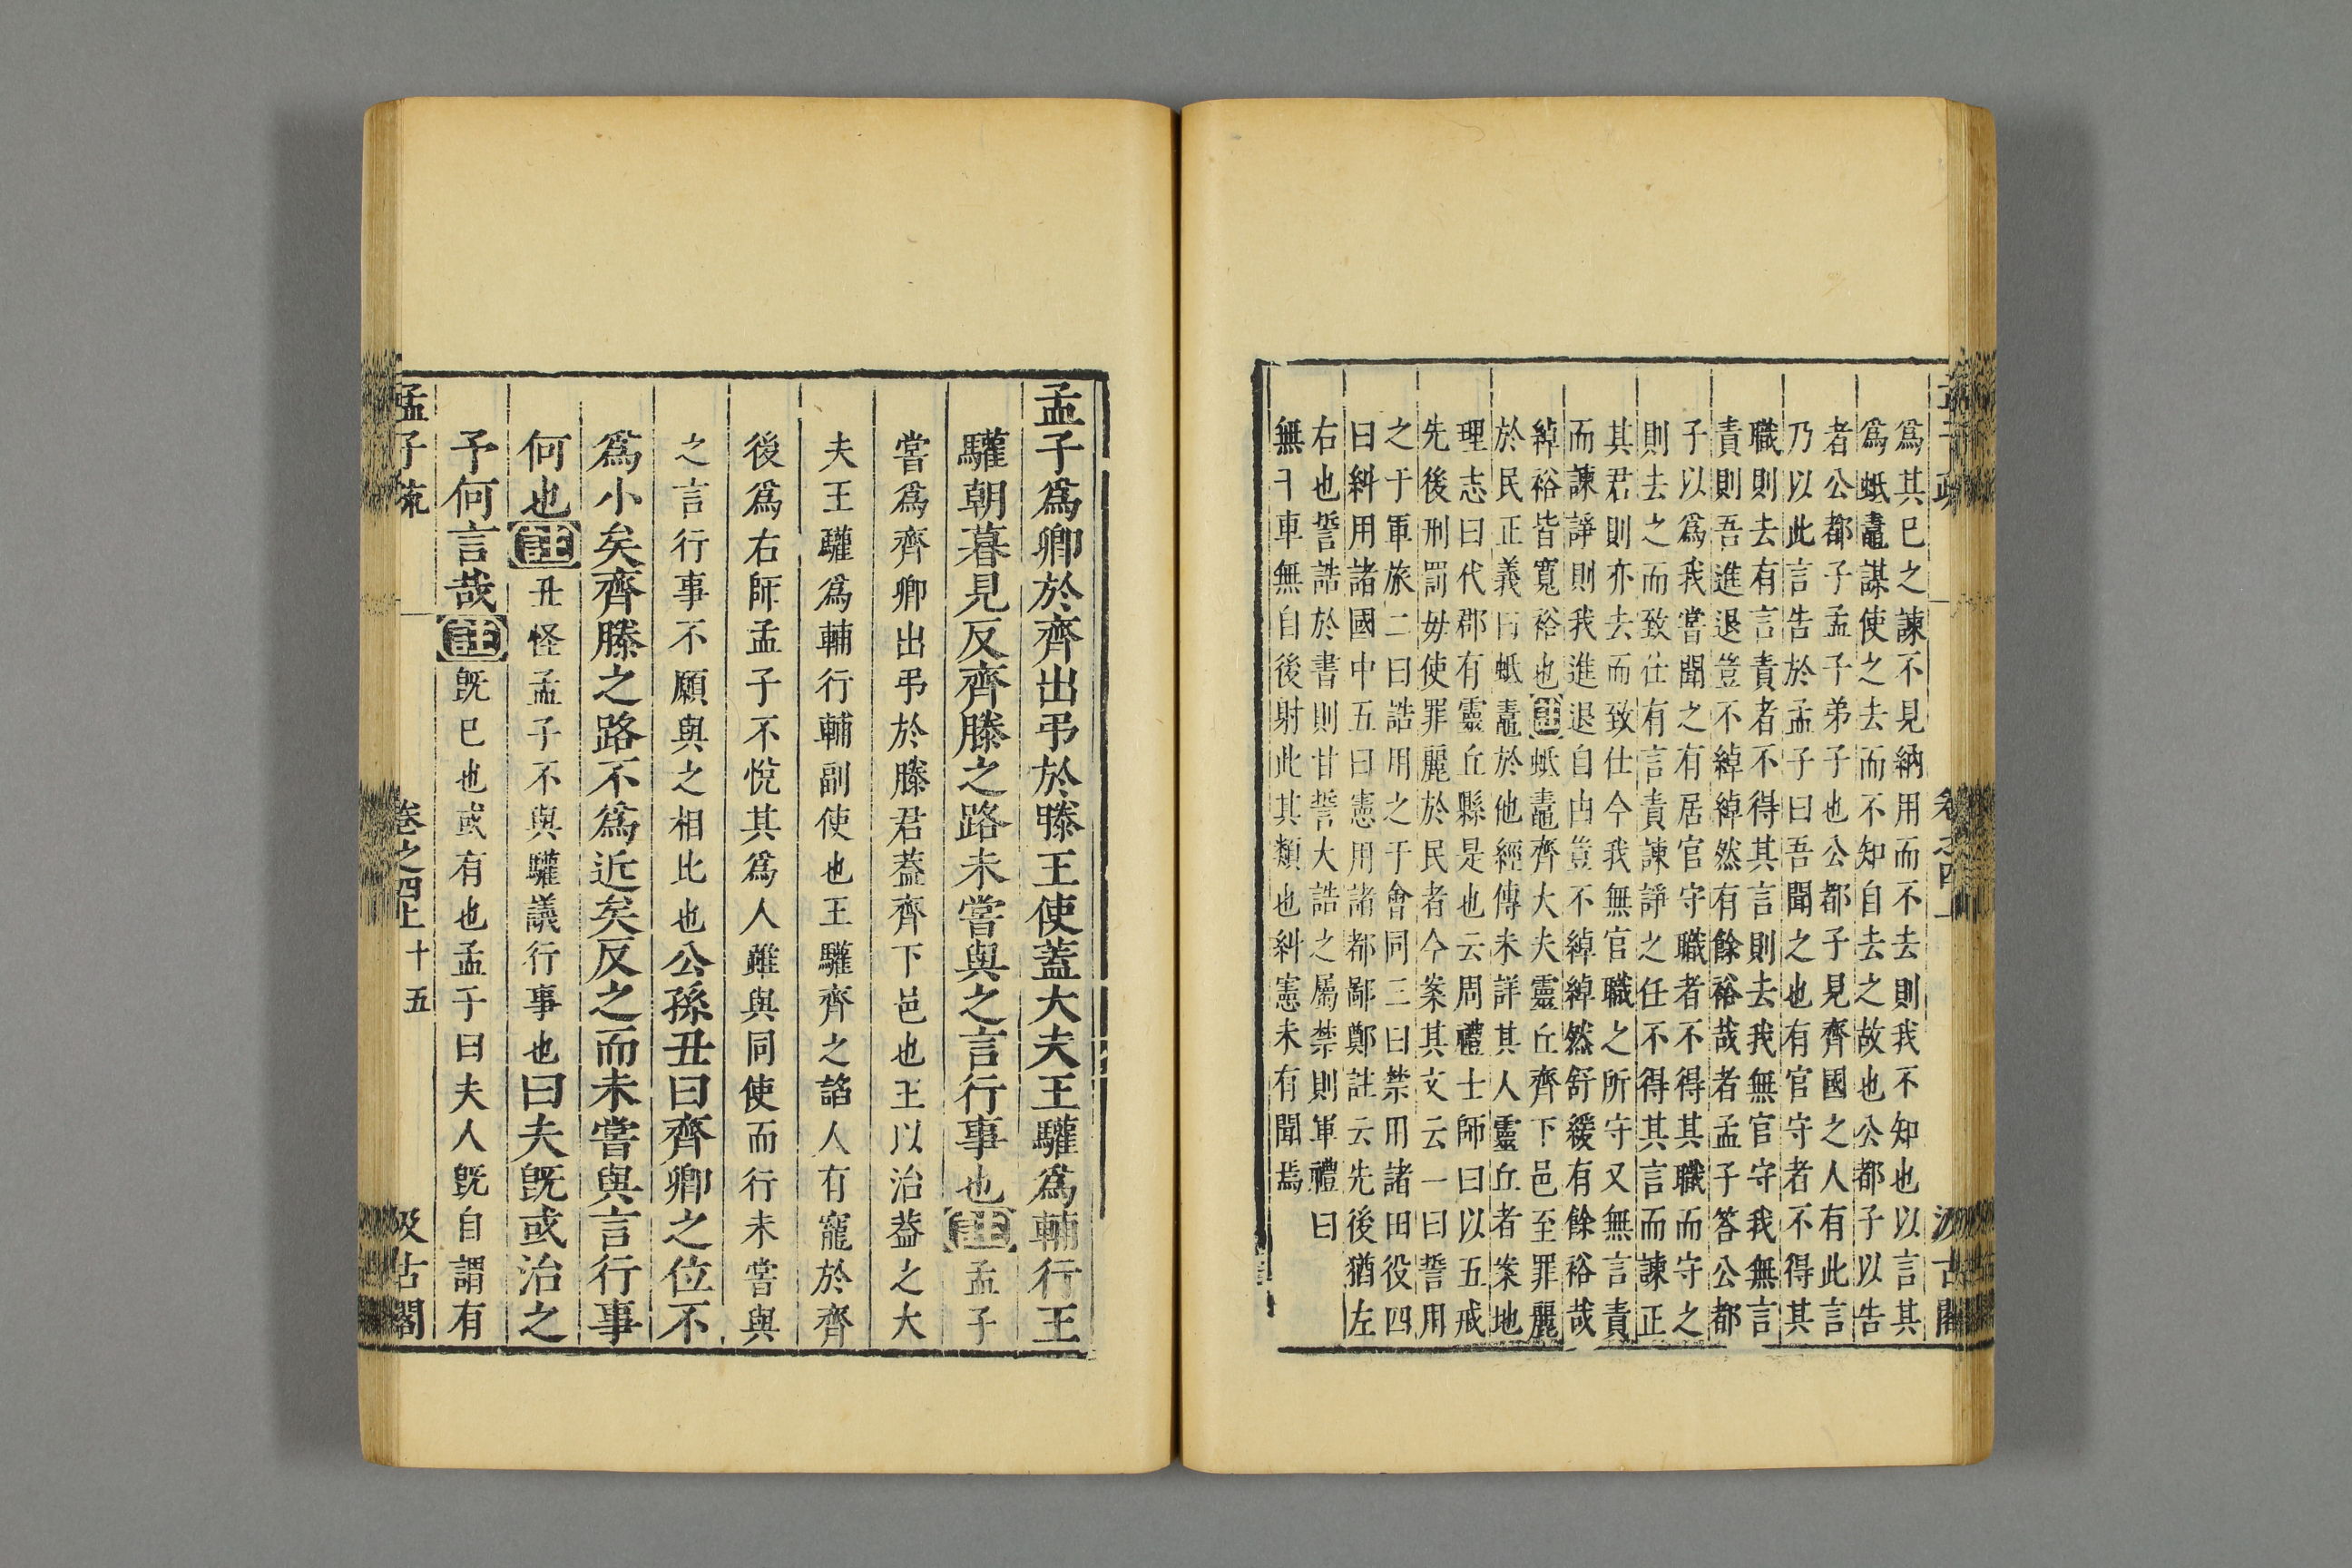 爲其巳之諫不見納用而不去則我不知也以言其
爲蚳鼃謀使之去而不知自去之故也公都子以告
者公都子孟子弟子也公都子見齊國之人有此言
乃以此言告於孟子曰吾聞之也有官守者不得其
職則去有言責者不得其言則去我無官守我無言
責則吾進退豈不綽綽然有餘裕哉者孟子答公都
子以爲我嘗聞之有居官守職者不得其職而守之
則去之而致仕有言責諫諍之任不得其言而諫正
其君則亦去而致仕今我無官職之所守又無言責
而諫諍則我進退自由豈不綽綽然舒緩有餘裕哉
綽裕皆寬裕也註蚳鼃齊大夫靈丘齊下邑至罪麗
於民正義曰蚳鼃於他經傳未詳其人靈丘者案地
理志曰代郡有靈丘縣是也云周禮士師曰以五戒
先後刑罰毋使罪麗於民者今案其文云一曰誓用
之于軍旅二曰誥用之于會同三曰禁用諸田役四
曰糾用諸國中五曰憲用諸都鄙鄭註云先後猶左
右也誓誥於書則甘誓大誥之屬禁則軍禮曰
無干車無自後射此其類也糾憲未有聞焉
孟子爲卿於齊出弔於滕王使蓋大夫王驩爲輔行王
驩朝暮見反齊滕之路未嘗與之言行事也註孟子
嘗爲齊卿出弔於滕君蓋齊下邑也王以治蓋之大
夫王驩爲輔行輔副使也王驩齊之諂人有寵於齊
後爲右師孟子不悅其爲人雖與同使而行未嘗與
之言行事不願與之相比也公孫丑曰齊卿之位不
爲小矣齊滕之路不爲近矣反之而未嘗與言行事
何也註丑怪孟子不與驩議行事也曰夫旣或治之
予何言哉註旣巳也或有也孟子曰夫人旣自謂有
孟子疏 卷之四上 十五 汲古閣